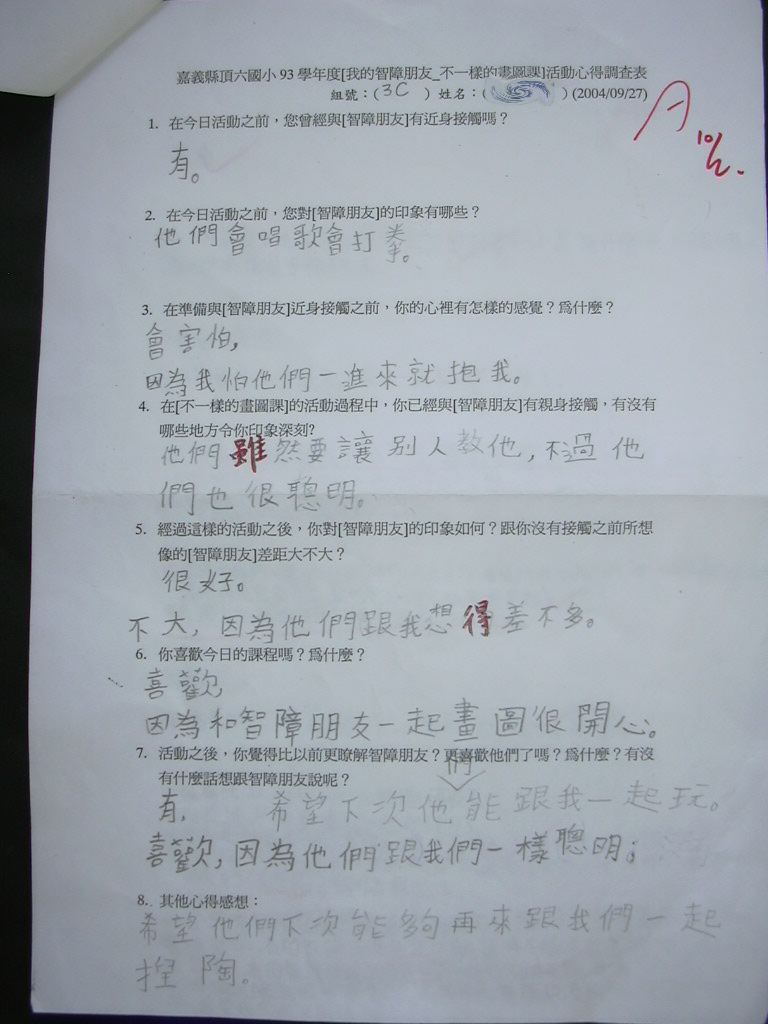 嘉義縣頂六國小93學年度[我的智障朋友_不一樣的畫圖課]活動心得調查表
組號：(3C ) 姓名：( ) (2004/09/27)
A
10/2.
1. 在今日活動之前，您曾經與[智障朋友]有近身接觸嗎？
有。
2. 在今日活動之前，您對[智障朋友]的印象有哪些？
他們會唱歌會打拳。
3. 在準備與[智障朋友]近身接觸之前，你的心裡有怎樣的感覺？為什麼？
會害怕,
因為我怕他們一進來就抱我。
4. 在[不一樣的畫圖課]的活動過程中，你已經與[智障朋友]有親身接觸，有沒有
哪些地方令你印象深刻?
他們雖然要讓別人教他,不過他
們也很聰明。
5. 經過這樣的活動之後，你對[智障朋友]的印象如何？跟你沒有接觸之前所想
像的[智障朋友]差距大不大？
很好。
不大,因為他們跟我想得差不多。
6. 你喜歡今日的課程嗎？為什麼？
喜歡
因為和智障朋友一起畫圖很開心。
7. 活動之後，你覺得比以前更瞭解智障朋友？更喜歡他們了嗎？為什麼？有沒
有什麼話想跟智障朋友說呢？
有, 希望下次他們能跟我一起玩。
喜歡,因為他們跟我們一樣聰明;
8. 其他心得感想：
希望他們下次能夠再來跟我們一起
捏陶。